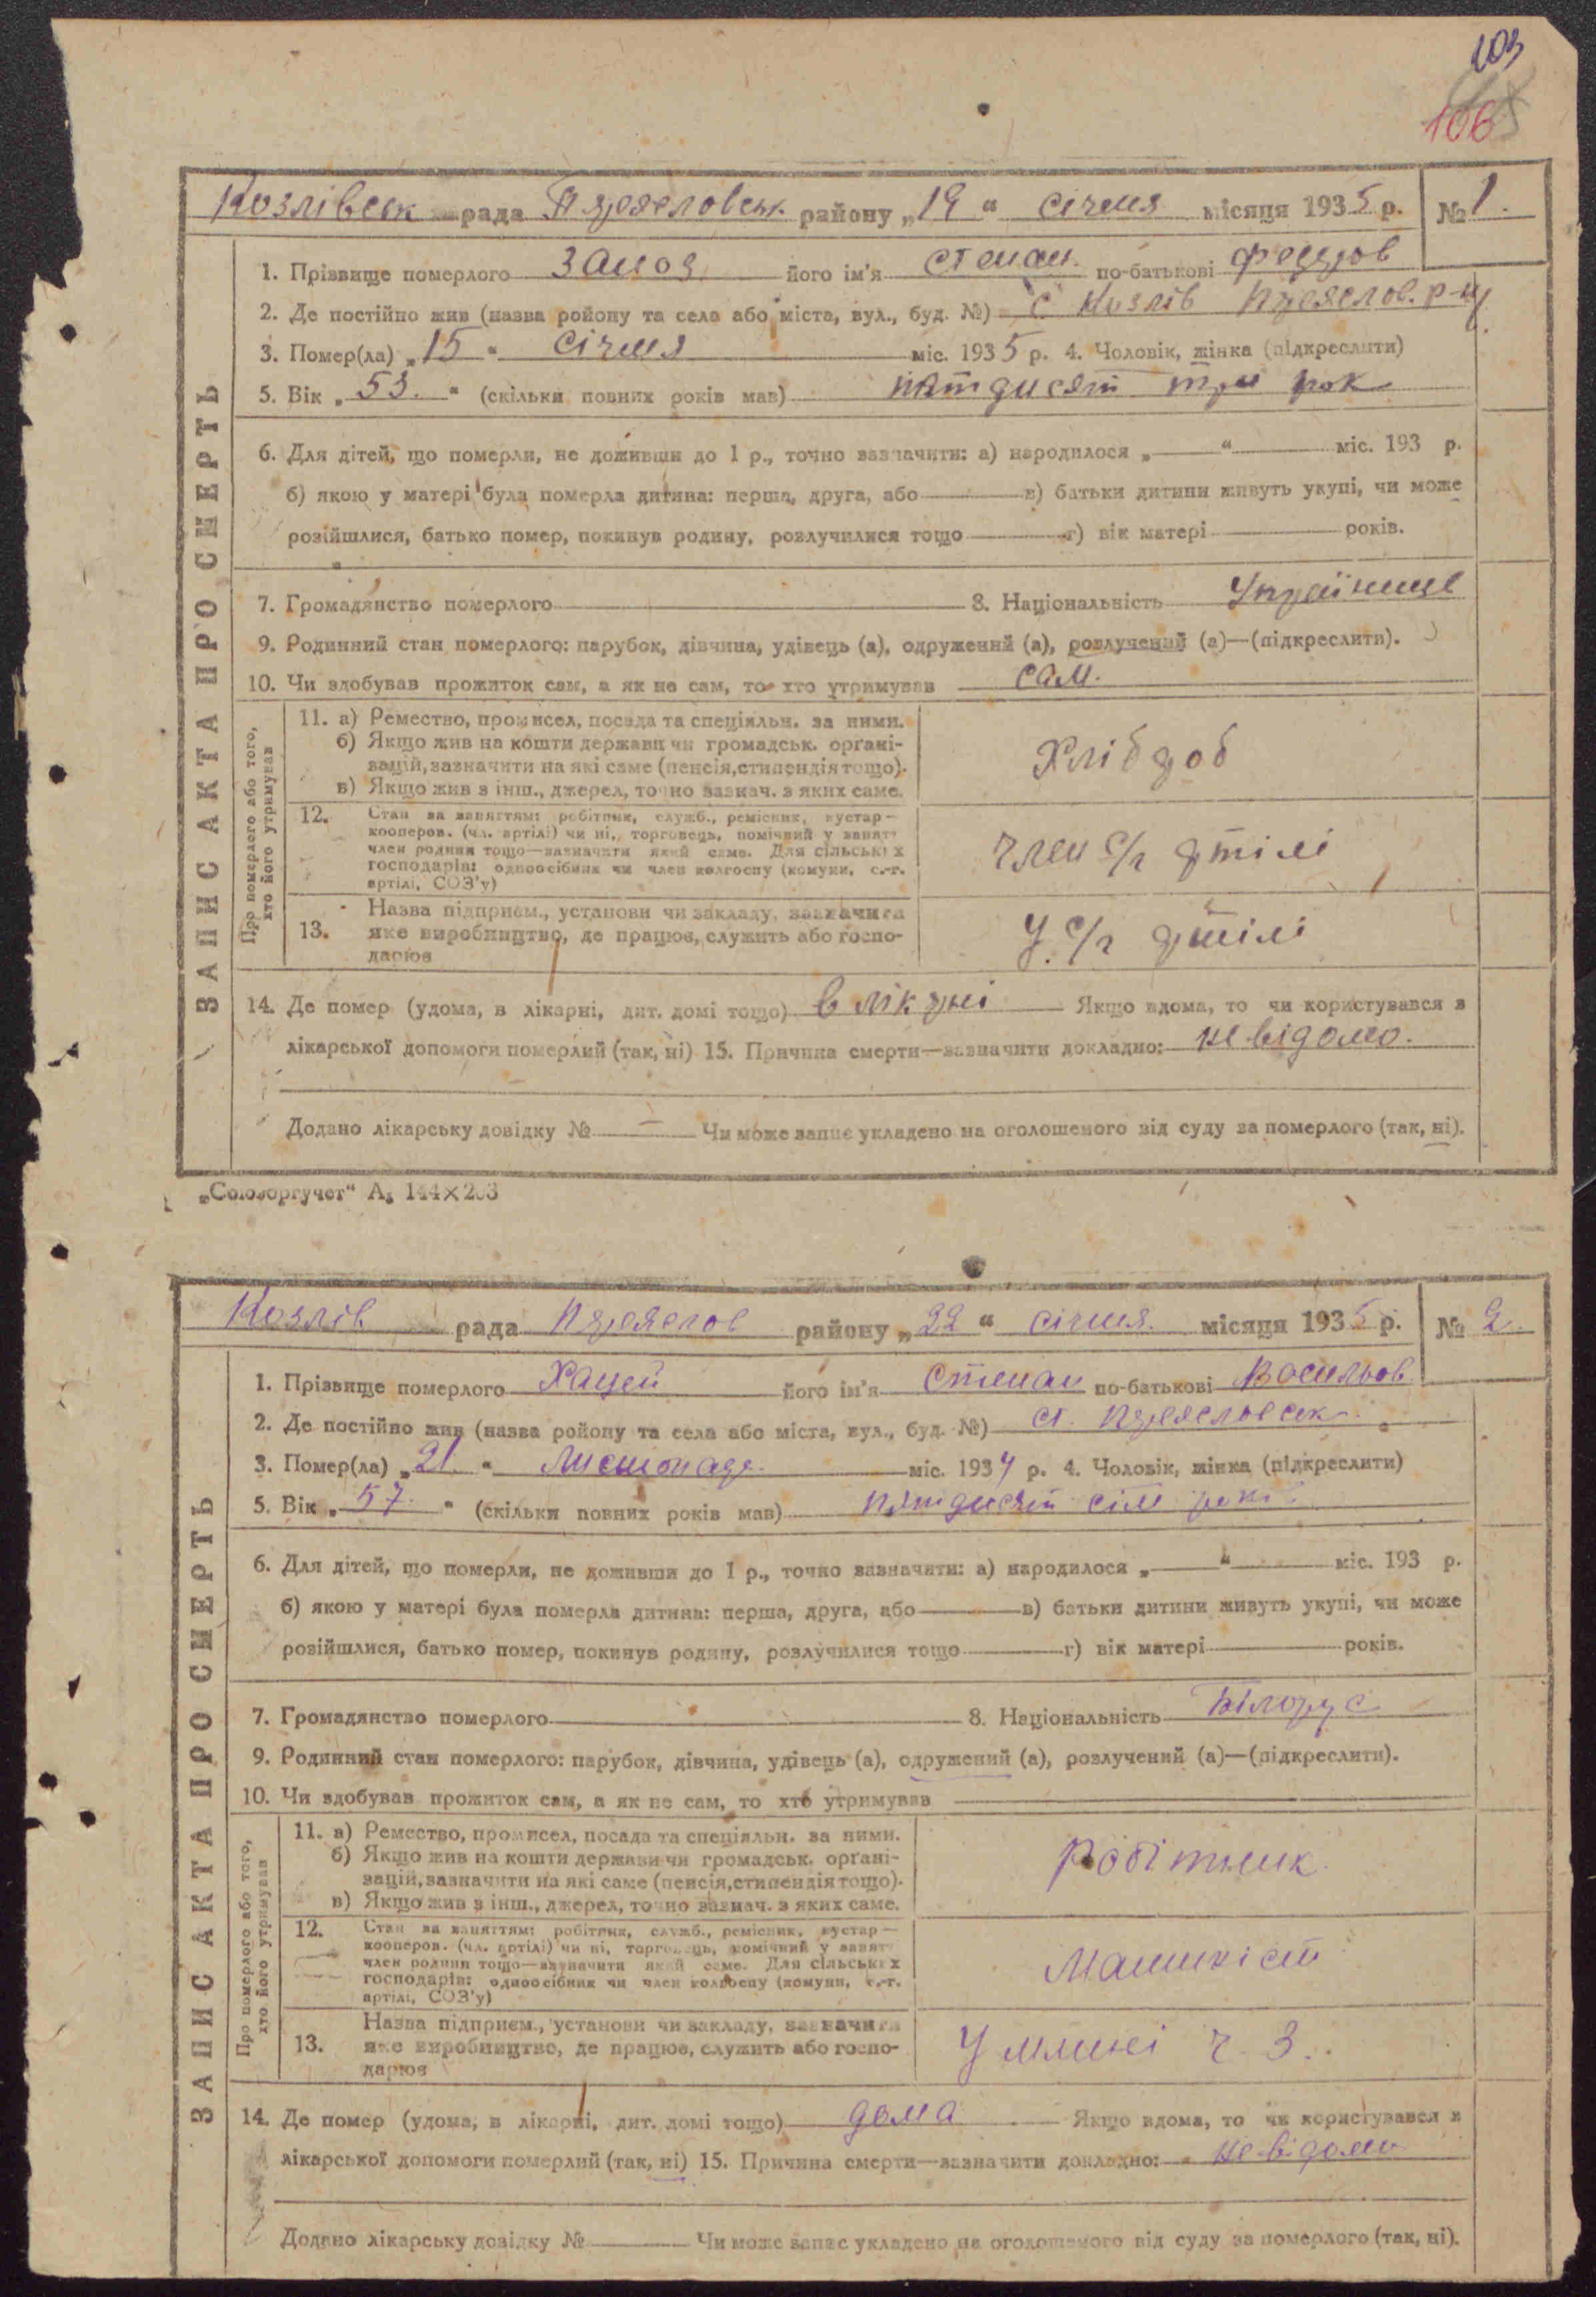 103
106
Козлівськ рада Переяславськ. району „19“ січня місяця 1935 р. №1.
1. Прізвище померлого його ім'я Степан. по-батькові Федоров
2. Де постійно жив (назва ройону та села або міста, вул., буд. №) с Козлів Переяслов. р-ну
3. Помер(ла) „15“ Січня міс. 1935 р. 4. Чоловік, жінка (підкреслити)
5. Вік „53.“ (скільки повних років мав) пятдисят три рок
6. Для дітей, що померли, не доживши до 1 р., точно зазначити: а) народилося „ “ міс. 193 р.
б) якою у матері була померла дитина: перша, друга, або в) батьки дитини живуть укупі, чи може
розійшлися, батько помер, покинув родину, розлучилися тощо г) вік матері років.
7. Громадянство померлого 8. Національність Українець
9. Родинний стан померлого: парубок, дівчина, удівець (а), одружений (а), розлучений (а)—(підкреслити).
10. Чи здобував прожиток сам, а як не сам, то хто утримував сам.
ЗАПИС АКТА ПРО СМЕРТЬ
Про померлого або того, хто його утримував
11. а) Ремество, промисел, посада та спеціяльн. за ними.
б) Якщо жив на кошти держави чи громадськ. органі-
зацій, зазначити на які саме (пенсія, стипендія тощо).
в) Якщо жив з інш., джерел, точно зазнач. з яких саме.
Хлібороб
12. Стан за заняттям: робітник, служб., ремісник, кустар—
кооперов. (чл. артілі) чи ні, торговець, помічний у занят
член родини тощо—зазначити який саме. Для сільських
господарів: одноосібник чи член колгоспу (комуни, с.-г.
артілі, СОЗ'у)
член с/г артілі
13. Назва підприєм., установи чи закладу, зазначити
яке виробництво, де працює, служить або госпо-
дарює
У с/г артілі
14. Де помер (удома, в лікарні, дит. домі тощо) в лікарні Якщо вдома, то чи користувався з
лікарської допомоги померлий (так, ні) 15. Причина смерти—зазначити докладно: не відомо.
Додано лікарську довідку № — Чи може запис укладено на оголошеного від суду за померлого (так, ні).
„Союзоргучет“ А₅ 144×203
Козлів рада Переяслов району „22“ січня. місяця 1935 р. № 2.
1. Прізвище померлого Хацей його ім'я Степан по-батькові Васильов
2. Де постійно жив (назва ройону та села або міста, вул., буд. №) ст. Переясловськ.
3. Помер(ла) „21.“ Листопада міс. 1934 р. 4. Чоловік, жінка (підкреслити)
5. Вік „57.“ (скільки повних років мав) пятдисят сім рокі
6. Для дітей, що померли, не доживши до 1 р., точно зазначити: а) народилося „ “ міс. 193 р.
б) якою у матері була померла дитина: перша, друга, або в) батьки дитини живуть укупі, чи може
розійшлися, батько помер, покинув родину, розлучилися тощо г) вік матері років.
7. Громадянство померлого 8. Національність Білорус
9. Родинний стан померлого: парубок, дівчина, удівець (а), одружений (а), розлучений (а)—(підкреслити).
10. Чи здобував прожиток сам, а як не сам, то хто утримував
ЗАПИС АКТА ПРО СМЕРТЬ
Про померлого або того, хто його утримував
11. а) Ремество, промисел, посада та спеціяльн. за ними.
б) Якщо жив на кошти держави чи громадськ. органі-
зацій, зазначити на які саме (пенсія, стипендія тощо).
в) Якщо жив з інш., джерел, точно зазнач. з яких саме.
Робітник
12. Стан за заняттям: робітник, служб., ремісник, кустар—
кооперов. (чл. артілі) чи ні, торговець, помічний у занят
член родини тощо—зазначити який саме. Для сільських
господарів: одноосібник чи член колгоспу (комуни, с.-г.
артілі, СОЗ'у)
Машиніст
13. Назва підприєм., установи чи закладу, зазначити
яке виробництво, де працює, служить або госпо-
дарює
У млині ч. 3.
14. Де помер (удома, в лікарні, дит. домі тощо) дома Якщо вдома, то чи користувався з
лікарської допомоги померлий (так, ні) 15. Причина смерти—зазначити докладно: не відомо
Додано лікарську довідку № Чи може запис укладено на оголошеного від суду за померлого (так, ні).